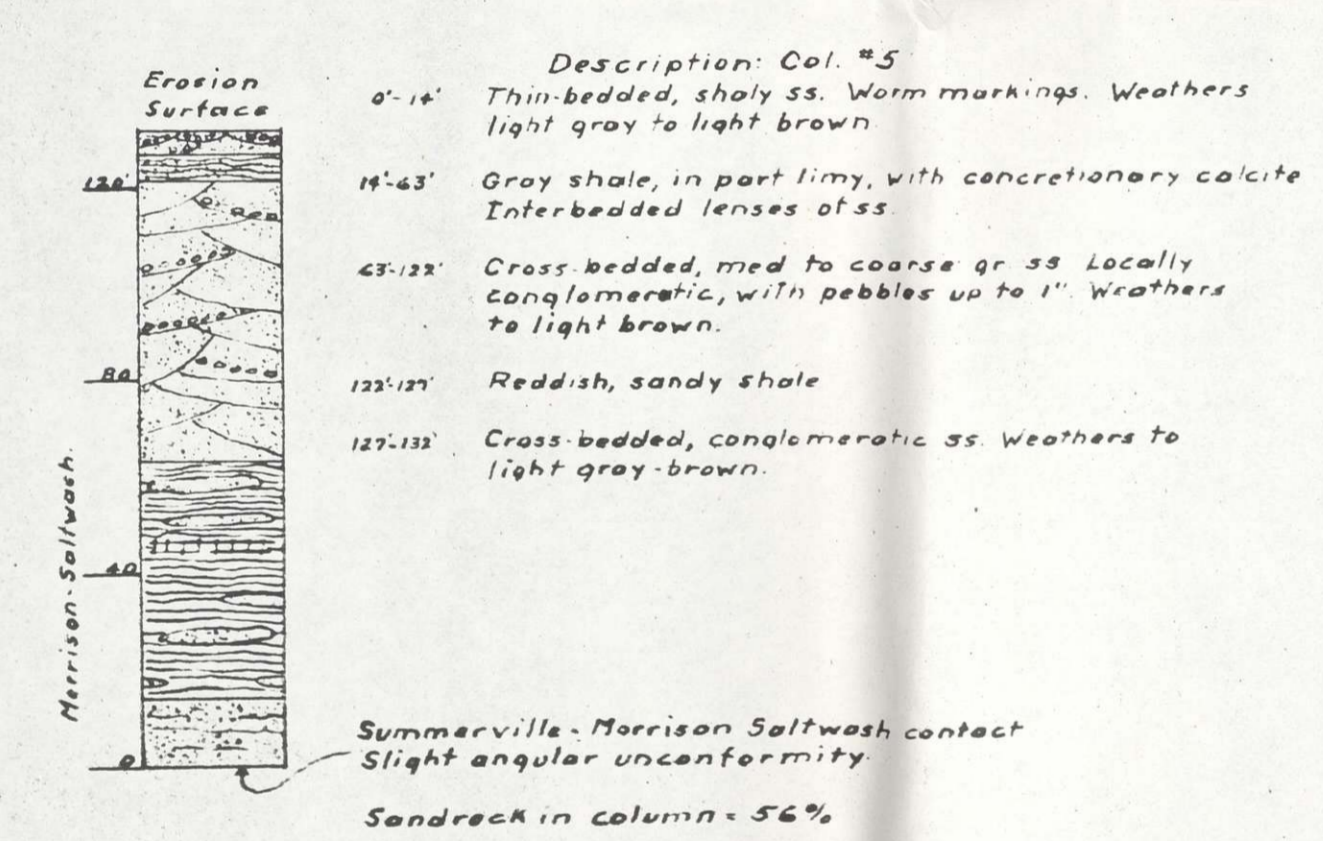 Description: Col. #5
Erosion
Surface
0'-14' Thin-bedded, shaly ss. Worm markings. Weathers
light gray to light brown.
14'-63' Gray shale, in part limy, with concretionary calcite
Interbedded lenses of ss.
63'-122' Cross-bedded, med to coarse gr ss Locally
conglomeratic, with pebbles up to 1". Weathers
to light brown.
122'-127' Reddish, sandy shale
127'-132' Cross-bedded, conglomeratic ss. Weathers to
light gray-brown.
120'
80
40
0
Morrison-Saltwash.
Summerville-Morrison Saltwash contact
Slight angular unconformity.
Sandrock in column = 56%